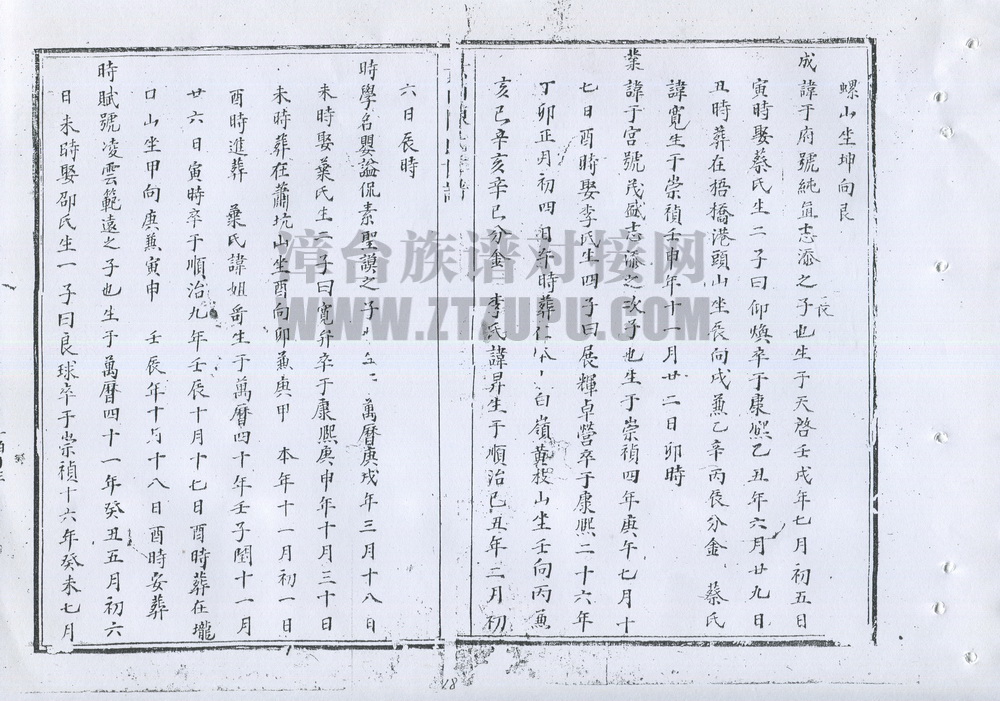 螺山坐坤向艮
成諱于府號純氣志添之子也生于天啓壬戌年七月初五日
寅時娶蔡氏生二子曰仰煥卒于康熙乙丑年六月廿九日
丑時葬在梧橋港頭山坐辰向戌兼乙辛丙辰分金 蔡氏
諱寬生于崇禎壬申年十一月廿二日卯時
業諱于宮號茂盛志添之次子也生于崇禎四年庚午七月十
七日酉時娶李氏生四子曰展輝卓營卒于康熙二十六年
丁卯正月初四日 時葬 白嶺 山坐壬向丙兼
亥巳辛亥辛巳分金 李氏諱昇生于順治己丑年二月初
六日辰時
時學名與謚侃素聖謨之子 萬曆庚戌年三月十八日
未時娶葉氏生二子曰寬昇卒于康熙庚申年十月三十日
未時葬在蕭坑山坐酉向卯兼庚甲 本年十一月初一日
酉時進葬 葉氏諱姐 生于萬曆四十年壬子閏十一月
廿六日寅時卒于順治九年壬辰十月十七日酉時葬在壠
口山坐甲向庚兼寅申 壬辰年十月十八日酉時安葬
時賦號凌雲範遠之子也生于萬曆四十一年癸丑五月初六
日未時娶邵氏生一子曰良球卒于崇禎十六年癸未七月
18
漳台族谱对接网
WWW.ZTZUPU.COM